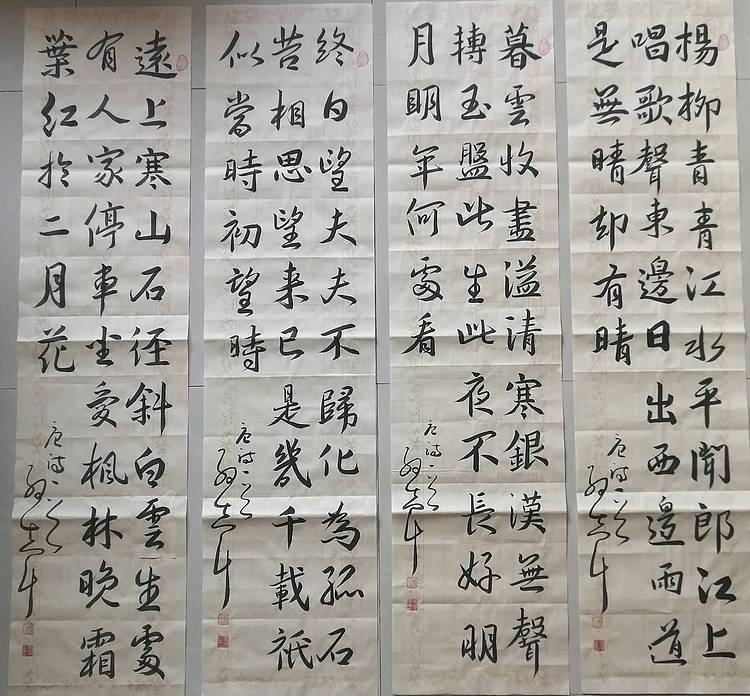 楊柳青青江水平聞郎江上
唱歌聲東邊日出西邊雨道
是無晴却有晴
唐诗一首
暮雲收盡溢清寒銀漢無聲
轉玉盤此生此夜不長好明
月明年何處看
唐诗一首
終日望夫夫不歸化為孤石
苦相思望来已是幾千載祇
似當時初望時
唐诗一首
遠上寒山石徑斜白雲生處
有人家停車坐愛楓林晚霜
葉紅於二月花
唐诗一首